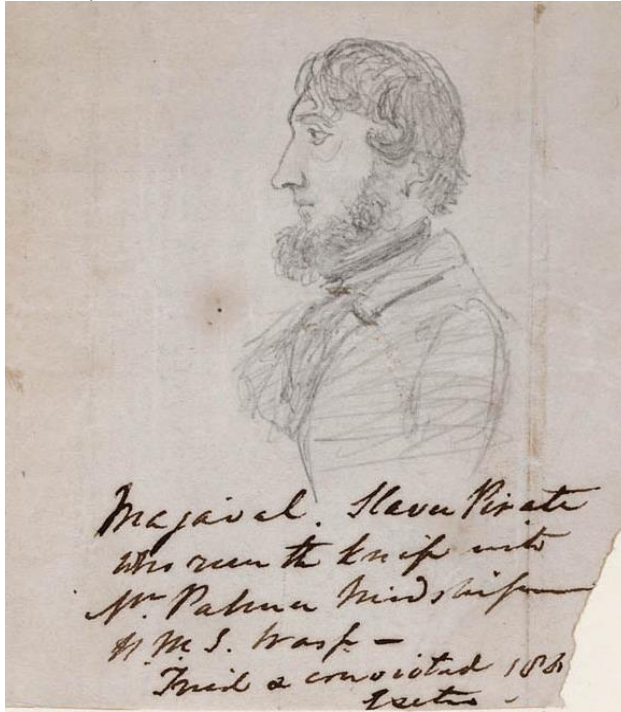 Majaval. Slaver Pirate
who run the knife into
Mr Palmer Midshipman
H.M.S. Wasp —
Tried & convicted 184
Exeter -